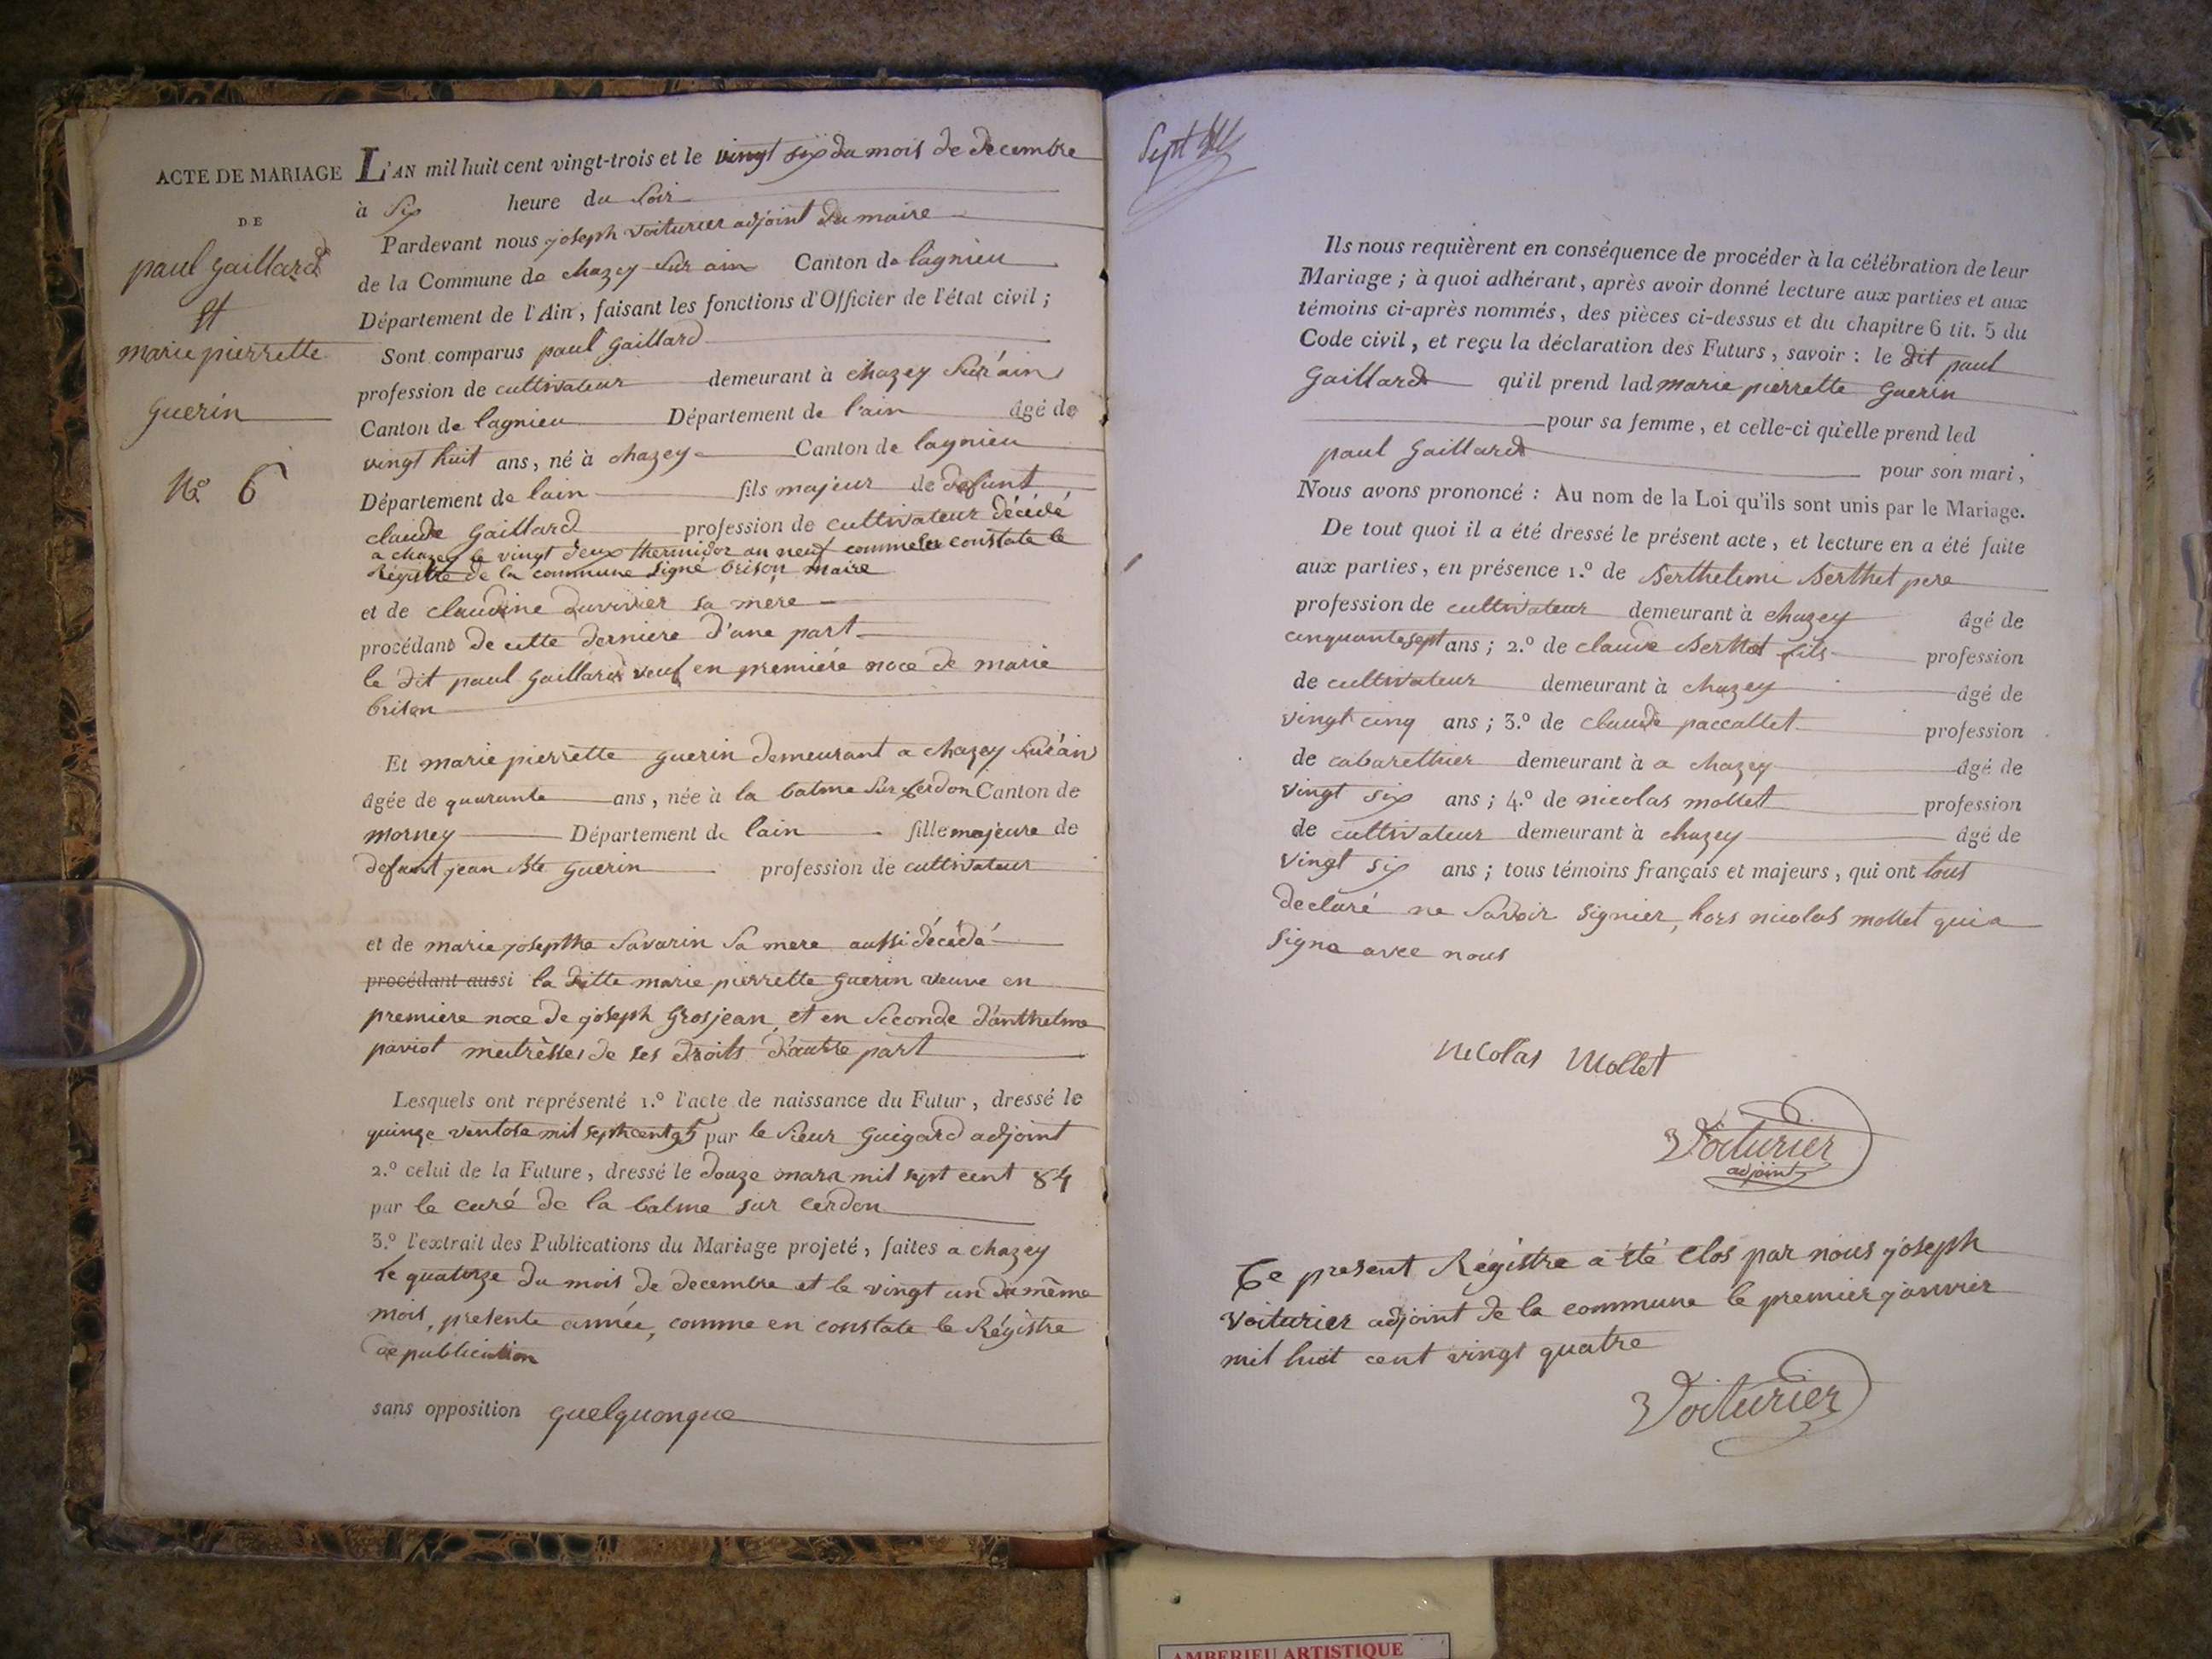 ACTE DE MARIAGE
DE
paul gaillard
Et
marie pierrette
guerin
N.º 6
L'AN mil huit cent vingt-trois et le vingt six du mois de decembre
à Six heure du Soir
Pardevant nous joseph voiturier adjoint du maire
de la Commune de chazey Sur ain Canton de lagnieu
Département de l'Ain, faisant les fonctions d'Officier de l'état civil;
Sont comparus paul gaillard
profession de cultivateur demeurant à chazey Sur ain
Canton de lagnieu Département de l'ain âgé de
vingt huit ans, né à chazey Canton de lagnieu
Département de lain fils majeur de defunt
claude gaillard profession de cultivateur décédé
a chazey le vingt deux thermidor an neuf comme le constate le
Régistre de la commune signé brison maire
et de claudine duvivier sa mere
procédant de cette derniere d'une part
le dit paul gaillard veuf en premiére noce de marie
brison
Et marie pierrette guerin demeurant a chazey sur ain
âgée de quarante ans, née à la balme sur cerdon Canton de
morney Département de lain fille majeure de
defunt jean Bte guerin profession de cultivateur
et de marie josepthe Savarin Sa mere aussi décédé
procédant aussi la ditte marie pierrette guerin veuve en
premiere noce de joseph grosjean, et en seconde d'anthelme
paviot meitresses de ses droits d'autre part
Lesquels ont représenté 1.º l'acte de naissance du Futur, dressé le
quinze ventose mil sept cent 95 par le Sieur guigard adjoint
2.º celui de la Future, dressé le douze mars mil sept cent 84
par le curé de la balme sur cerdon
3.º l'extrait des Publications du Mariage projeté, faites a chazey
le quatorze du mois de decembre et le vingt un du même
mois, presente année, comme en constate le Régistre
de publication
sans opposition quelquonque
Sept
Ils nous requièrent en conséquence de procéder à la célébration de leur
Mariage; à quoi adhérant, après avoir donné lecture aux parties et aux
témoins ci-après nommés, des pièces ci-dessus et du chapitre 6 tit. 5 du
Code civil, et reçu la déclaration des Futurs, savoir: le dit paul
gaillard qu'il prend lad marie pierrette guerin
pour sa femme, et celle-ci qu'elle prend led
paul gaillard pour son mari,
Nous avons prononcé: Au nom de la Loi qu'ils sont unis par le Mariage.
De tout quoi il a été dressé le présent acte, et lecture en a été faite
aux parties, en présence 1.º de Berthelimi Berthet pere
profession de cultivateur demeurant à chazey âgé de
cinquante sept ans; 2.º de claude Berthet fils profession
de cultivateur demeurant à chazey âgé de
vingt cinq ans; 3.º de claude paccallet profession
de cabarethier demeurant à a chazey âgé de
vingt six ans; 4.º de nicolas mollet profession
de cultivateur demeurant à chazey âgé de
vingt six ans; tous témoins français et majeurs, qui ont tous
declaré ne savoir signier, hors nicolas mollet qui a
signe avec nous
Nicolas Mollet
Voiturier
adjoint
Ce present Régistre a été clos par nous joseph
voiturier adjoint de la commune le premier janvier
mil huit cent vingt quatre
Voiturier
AMBERIEU ARTISTIQUE